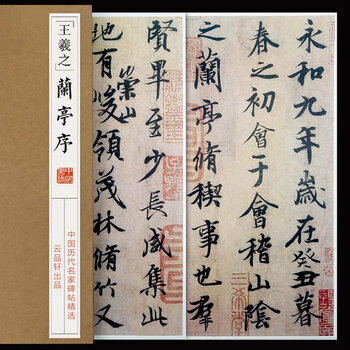 「王羲之」蘭亭序
中国历代名家碑帖精选
云品轩出品
永和九年歲在癸丑暮
春之初會于會稽山陰
之蘭亭脩稧事也羣
賢畢至少長咸集此
地有崇山峻領茂林脩竹又